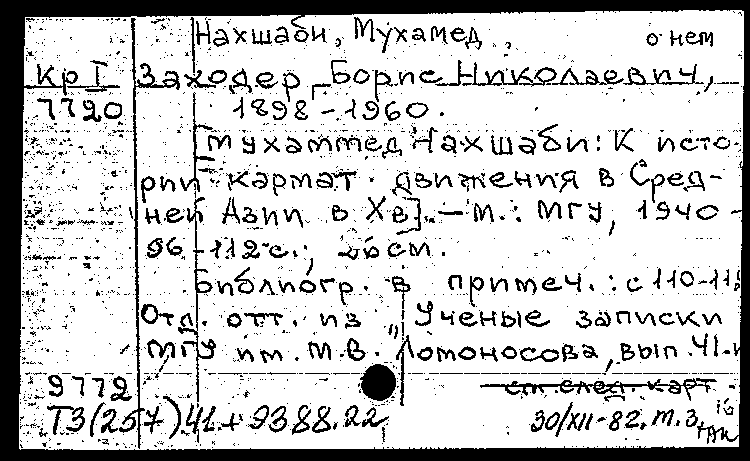 Нахшаби, Мухамед, о нем
Кр I Заходер, Борис Николаевич,
7720 1898-1960.
[Мухаммед Нахшаби: К исто-
рии кармат. движения в Сред-
ней Азии в Xв]. — М.: МГУ, 1940 -
96-112 с.; 
Библиогр. в примеч.: с 110-11
Отд. отт. из „Ученые записки
МГУ им. М.В. Ломоносова, вып. 41.
9772 см. след. карт.
Т3(257)41 + Э388.22 30/XII-82. м. З. 16